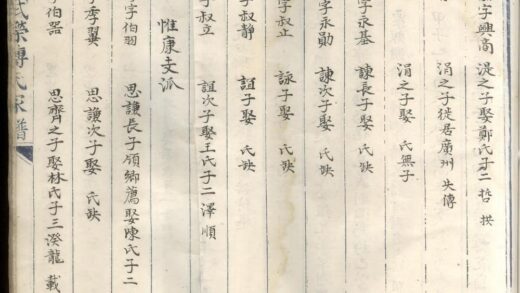 字興高 湜之子娶鄭氏子二哲拱
涓之子徙居廣州失傳
涓之子娶 氏無子
字永基 諫長子娶 氏缺
字永勛 諫次子娶 氏缺
字叔止 詠子娶 氏缺
字叔靜 誼子娶 氏缺
字叔立 誼次子娶王氏子二澤順
惟康支派
字伯羽 思謙長子領鄉薦娶陳氏子二
字季翼 思謙次子娶 氏缺
字伯器 思齊之子娶林氏子三潑龍載
武榮傅氏家譜